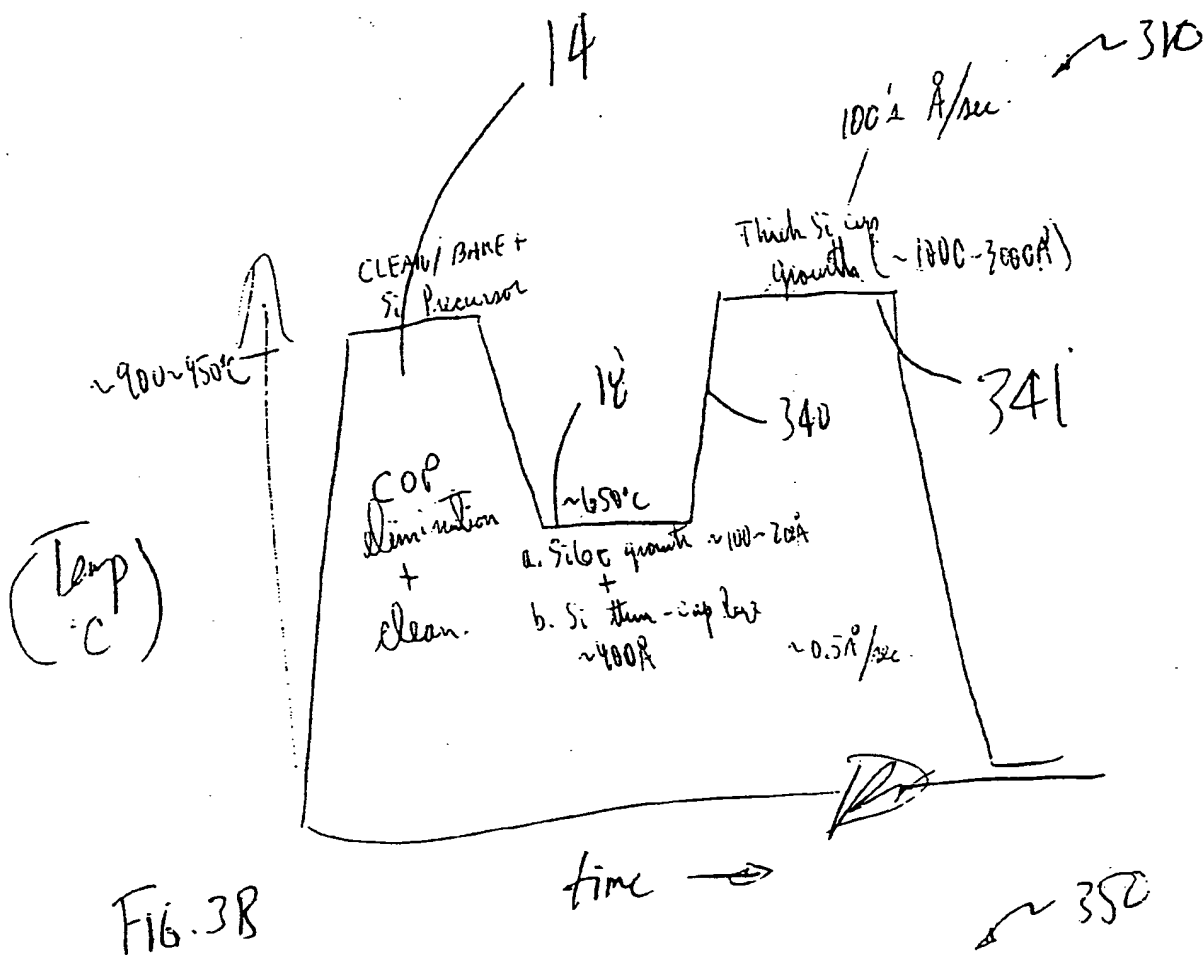 14
~ 310
100's Å/sec.
CLEAN/BAKE +
Si Precursor
Thick Si cap
growth (~1000-3000Å)
18
340
341
COP
elimination
+
clean.
~650°C
a. growth ~100~200Å
+
b. Si thin-cap
~400Å
~0.5Å/sec.
Temp
°C
time
FIG. 3B
~ 350